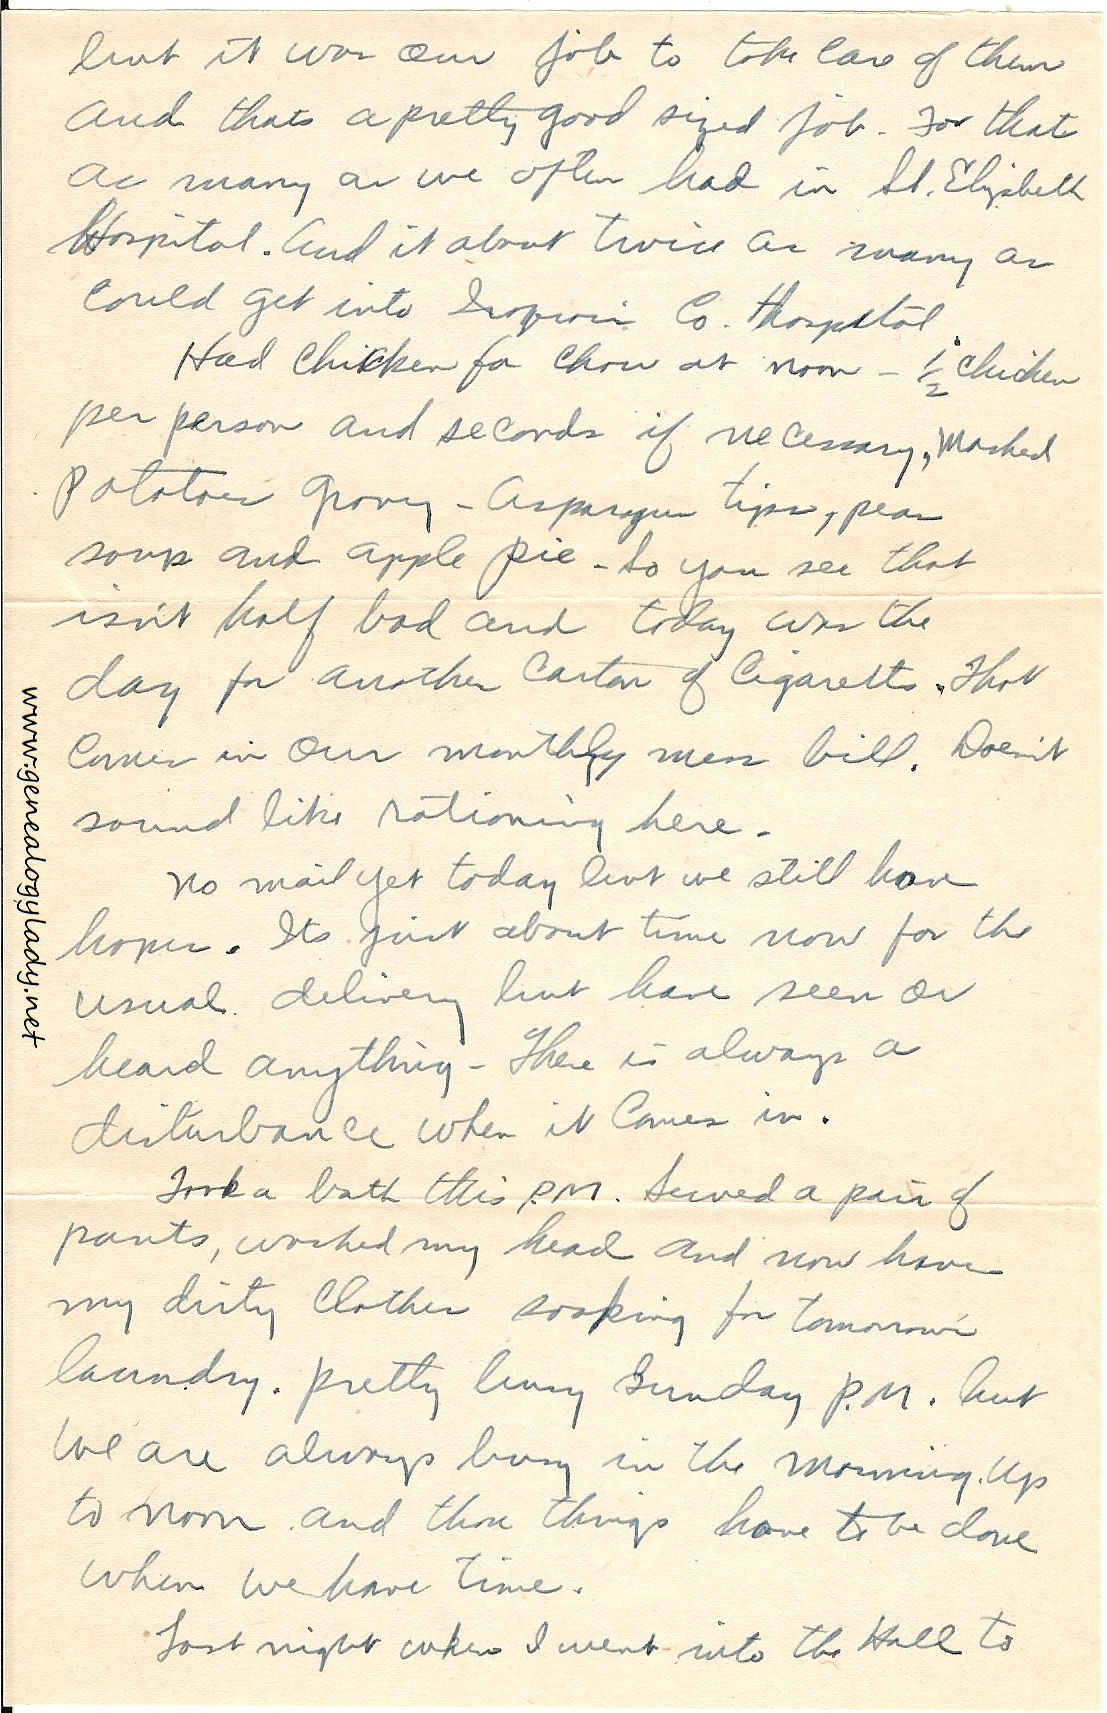 but it was our job to take care of them
and thats a pretty good sized job. For that
as many as we often had in St. Elizabeth
Hospital. And it about twice as many as
could get into Iroquois Co. Hospital.
Had chicken for chow at noon - 1/2 chicken
per person and seconds if necessary, Mashed
Potatoes gravy - asparagus tips, peas
soup and apple pie - So you see that
isn't half bad and today was the
day for another carton of cigaretts. That
comes in our monthly mess bill. Doesn't
sound like rationing here.
No mail yet today but we still have
hopes. Its just about time now for the
usual delivery but have seen or
heard anything - There is always a
disturbance when it comes in.
Took a bath this P.M. Sewed a pair of
pants, washed my head and now have
my dirty clothes soaking for tomorrow's
laundry. Pretty busy Sunday P.M. but
we are always busy in the morning. Up
to noon and those things have to be done
when we have time.
Last night when I went into the Hall to
www.genealogylady.net